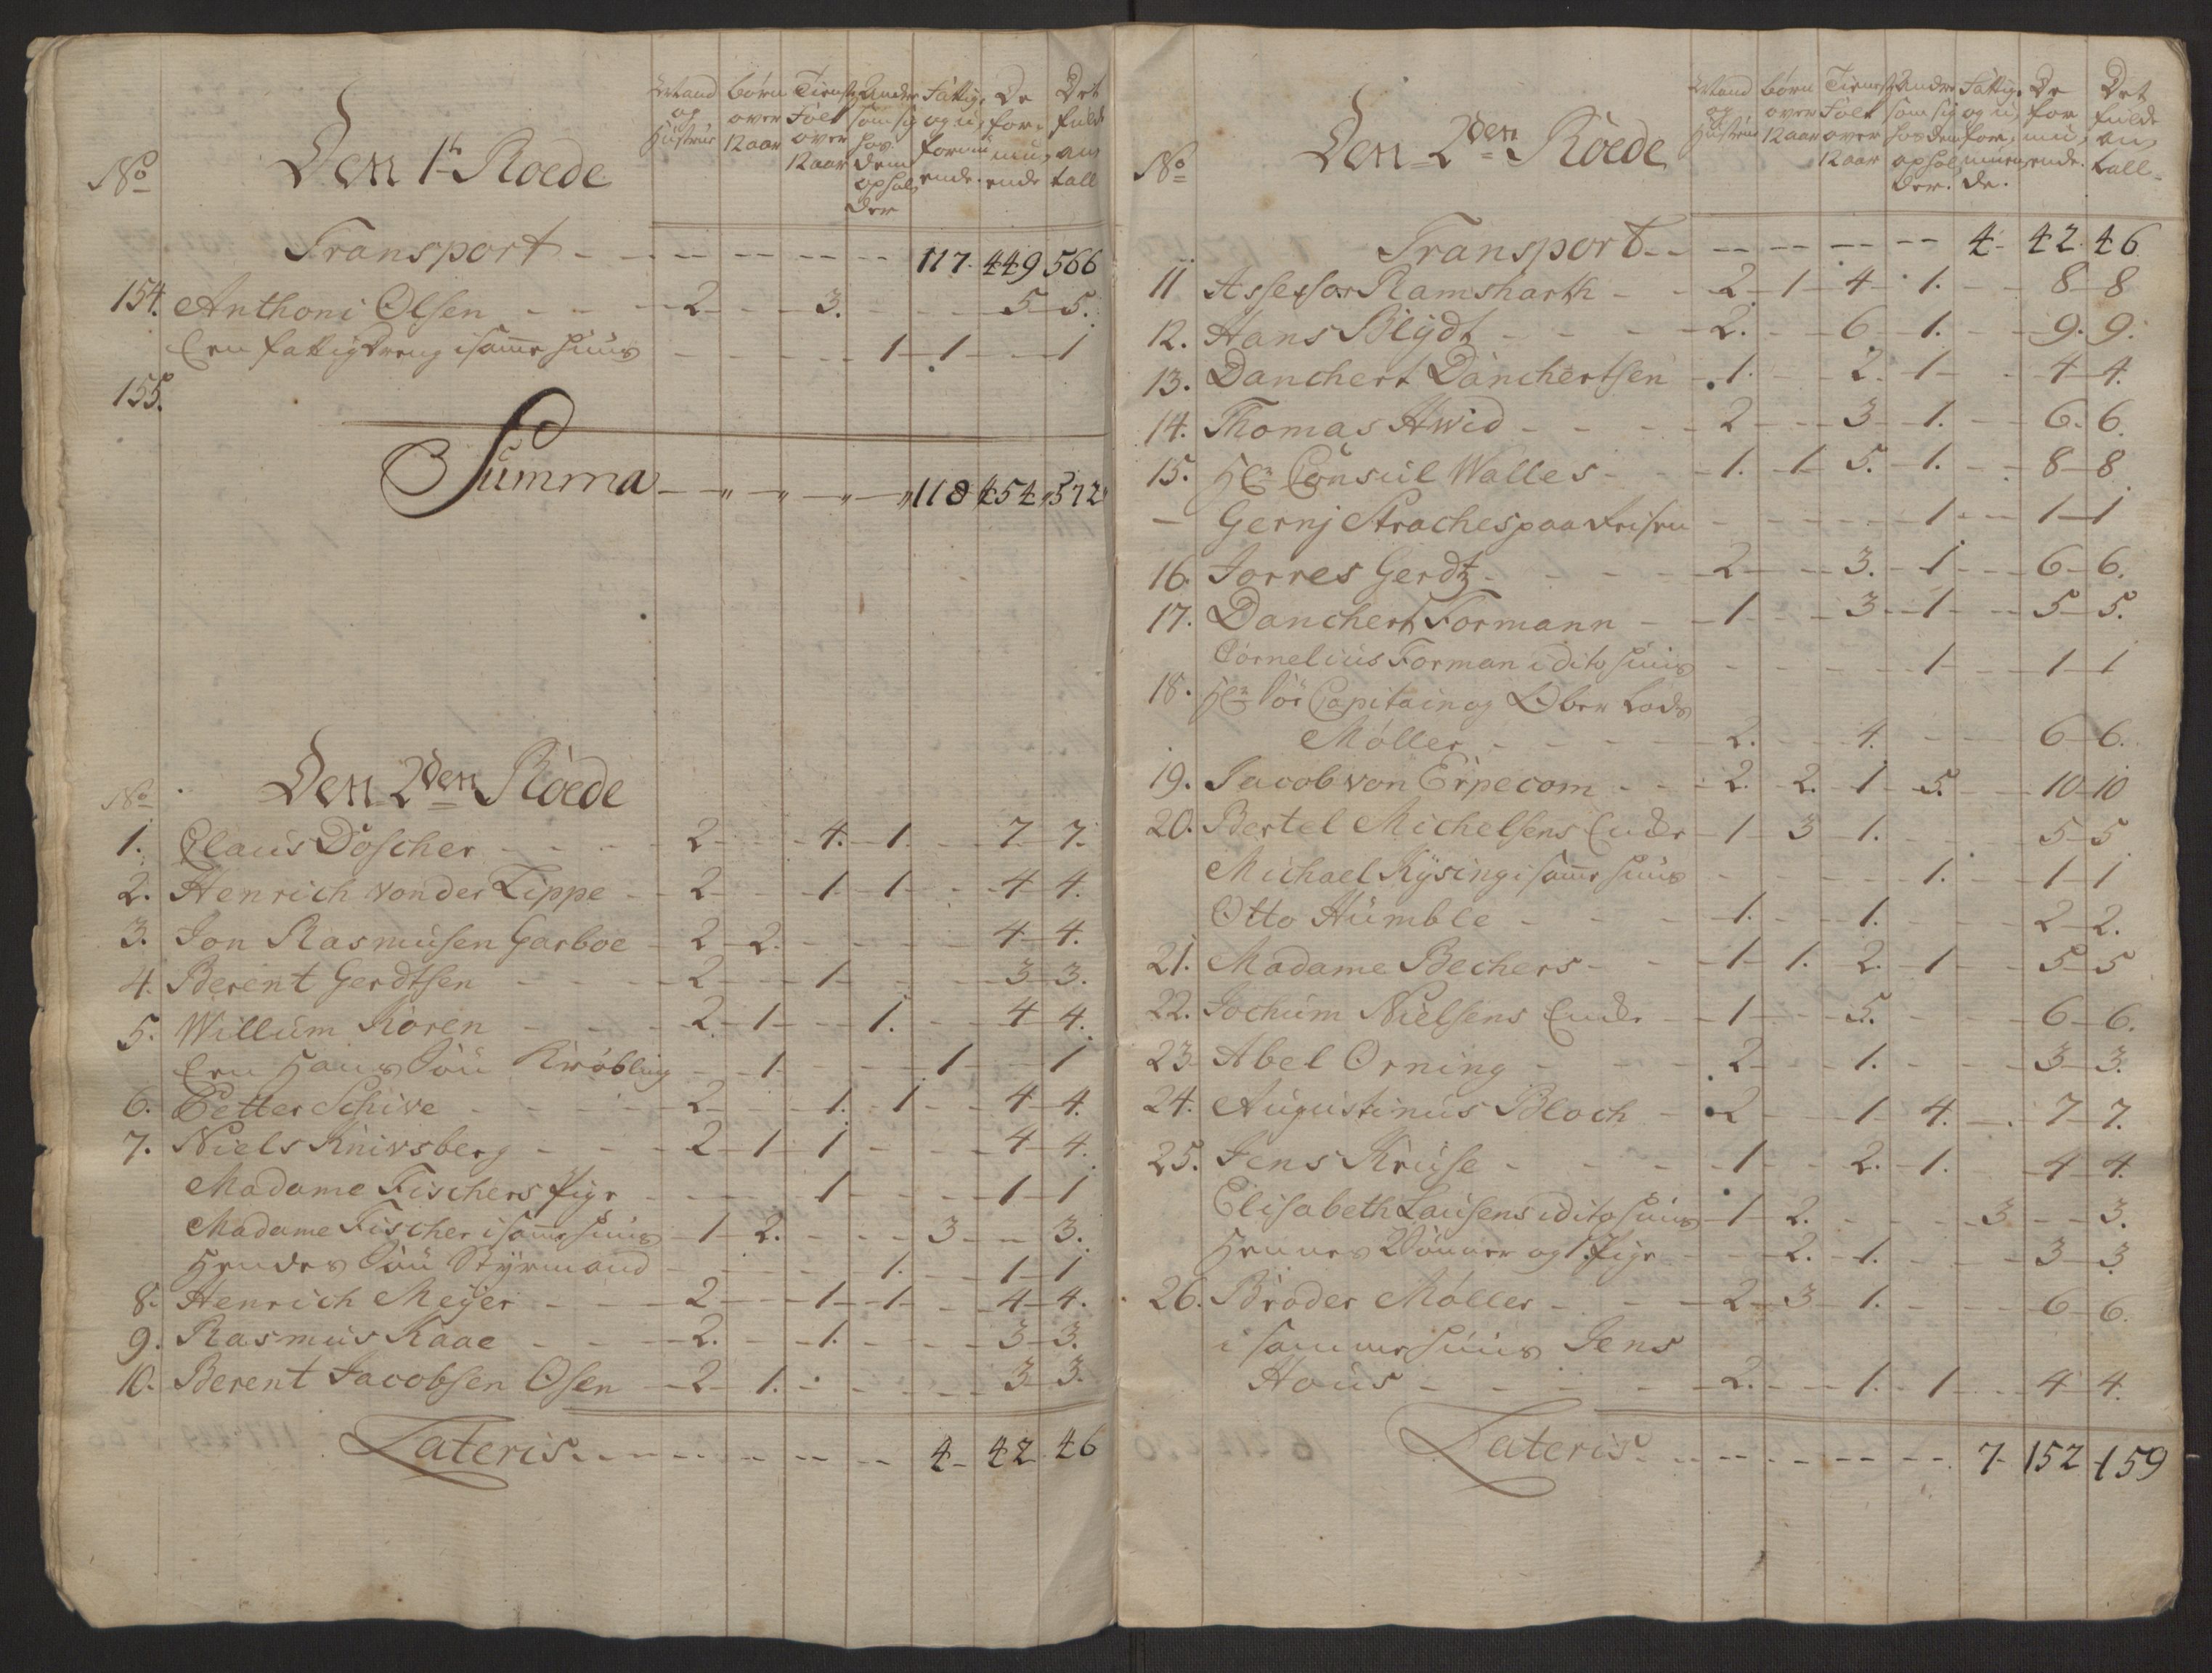 No
Den 1te Roede
Mand og Hustrue
børn over 12 aar
Tieneste Folk over 12 aar
Andre som sig hos dem opholder
Fattige og uformuende
De formuende
Det fulde antall
Transport - - - - - - 117. 449 566
154. Anthoni Olsen - - - 2 - - 3. - - - 5 - 5.
Een fattig Dreng i samme Huus - - - - 1 - 1 - - 1
155.
Summa - - " - - " - " 118 454 " 572
No
Den 2den Roede
1. Claus Döscher - - - 2 - - 4. - 1. - - 7 - 7.
2. Henrich von der Lippe - 2 - - 1 - 1. - - 4 4.
3. Jon Rasmusen Garboe - 2 - 2. - - - - 4 - 4.
4. Berent Gerdtsen - - - 2 - - 1 - - - 3 - 3.
5. Willum Koren - - - 2. - 1 - - 1. - - 4 4.
Een Hans Søn Krøbling - - 1. - - - 1 - - 1
6. Petter Schive - - - 2 - - 1. 1 - - 4 - 4.
7. Niels Knivsberg - - - 2 - 1 - 1 - - - 4 - 4.
Madame Fischers Pige - - - - 1 - - - 1 - 1
Madame Fischer i samme Huus - 1 - 2. - - - 3 - - 3.
Hendes Søn Styrmand - - - - 1. - - 1 - 1
8. Henrich Meyer - - - 2 - - 1 - 1 - - 4 - 4.
9. Rasmus Kaae - - 2. - - 1. - - - 3 - 3.
10. Berent Jacobsen Osen - 2 - 1. - - - - 3 - 3.
Lateris - - - - - - 4 - 42 46
No
Den 2den Roede
Mand og Hustrue
børn over 12 aar
Tieneste Folk over 12 aar
Andre som sig hos dem opholder.
Fattige og uformuende.
De formuende.
Det fulde antall
Transport - - - - - - 4 - 42. 46
11 Assessor Ramsharth - - 2 - 1 - 4 - 1. - - 8 - 8
12. Hans Blÿdt - - - 2. - - 6 - 1. - - 9. 9.
13. Danchert Danchertsen - 1. - - 2. - 1 - - 4 - 4.
14. Thomas Hwid - - - 2 - - 3 - 1. - - 6. 6.
15. Hr. Consul Walles - - 1. - 1 5. - 1. - - 8 - 8
- Gernj Straches paa Reisen - - - - - 1 - - 1 - 1
16. Jorres Gerdtz - - - 2 - - 3. - 1 - - 6 - 6.
17. Danchert Formann - - 1 - - 3 - 1 - - 5 - 5.
Cornelius Forman i dito Huus - - - - 1 - - 1 - 1
18. Hr. Søe Capitain og Ober Lods
Møller - - - 2. - - 4. - - - 6 - 6.
19. Jacob von Erpecom - - 2. 2. - 1 - 5. - - 10 - 10
20. Bertel Michelsens Enke - 1 - 3 - 1. - - - 5 - 5
Michael Rÿsing i samme Huus - - - - 1. - - 1 - 1
Otto Humble - - - 1. - - 1. - - - 2 - 2.
21. Madame Bechers - - 1 - 1. - 2. - 1 - - 5 - 5
22. Jochum Nielsens Enke - 1 - - 5. - - - 6 - 6.
23 Abel Orning - - - 2 - - 1. - - - 3 - 3.
24. Augustinus Bloch - 2 - - 1 - 4. - - 7 - 7.
25. Jens Kruse - - - 1 - - 2. - 1. - 4 - 4.
Elisabeth Lausens i dito Huus - 1 - 2. - - - 3 - - 3.
Hennes Sønner og 1 Pige - - 2. - 1. - - 3 - 3
26. Broder Møller - - 2 - 3 - 1. - - - 6 - 6.
i samme Huus Jens
Hous - - - 2. - - 1. - 1 - - 4 - 4.
Lateris - - - - - - 7 - 152 159